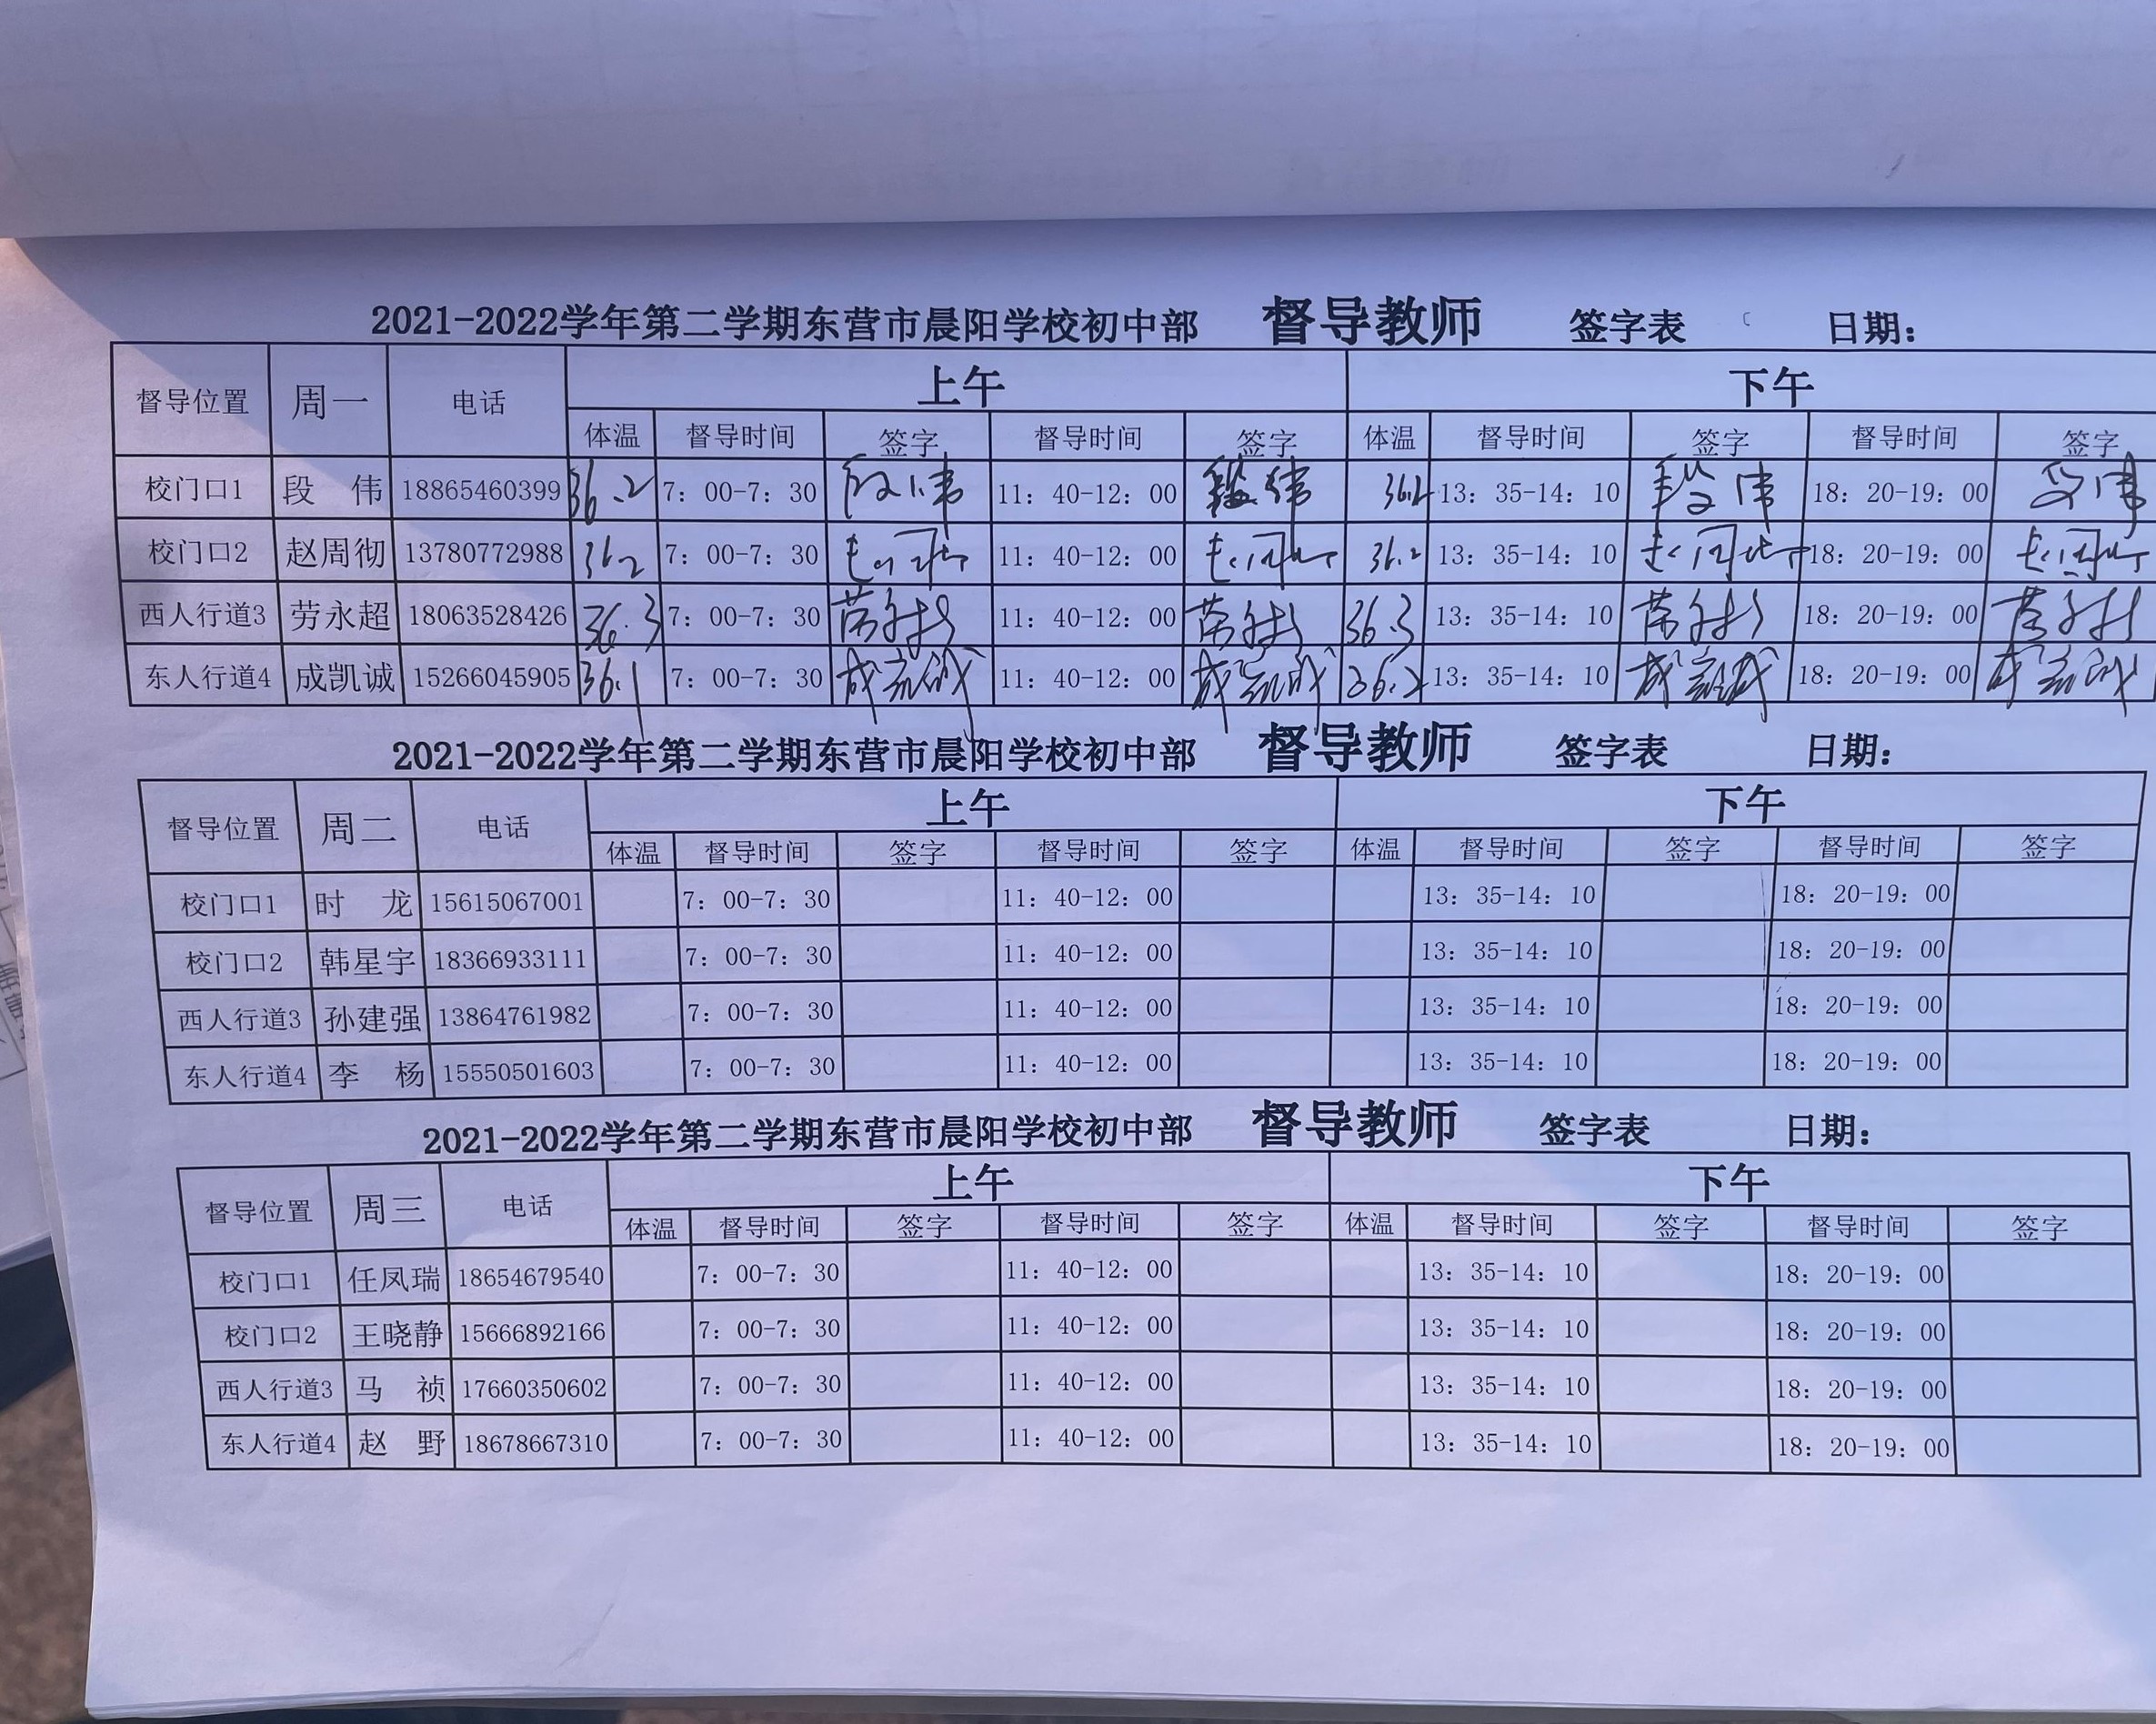 2021-2022学年第二学期东营市晨阳学校初中部 督导教师 签字表 日期：
督导位置 周一 电话 上午 下午
体温 督导时间 签字 督导时间 签字 体温 督导时间 签字 督导时间 签字
校门口1 段 伟 18865460399 36.2 7：00-7：30 段伟 11：40-12：00 段伟 36.2 13：35-14：10 段伟 18：20-19：00 段伟
校门口2 赵周彻 13780772988 36.2 7：00-7：30 赵周彻 11：40-12：00 赵周彻 36.2 13：35-14：10 赵周彻 18：20-19：00 赵周彻
西人行道3 劳永超 18063528426 36.3 7：00-7：30 劳永超 11：40-12：00 劳永超 36.3 13：35-14：10 劳永超 18：20-19：00 劳永超
东人行道4 成凯诚 15266045905 36.1 7：00-7：30 成凯诚 11：40-12：00 成凯诚 36.2 13：35-14：10 成凯诚 18：20-19：00 成凯诚
2021-2022学年第二学期东营市晨阳学校初中部 督导教师 签字表 日期：
督导位置 周二 电话 上午 下午
体温 督导时间 签字 督导时间 签字 体温 督导时间 签字 督导时间 签字
校门口1 时 龙 15615067001 7：00-7：30 11：40-12：00 13：35-14：10 18：20-19：00
校门口2 韩星宇 18366933111 7：00-7：30 11：40-12：00 13：35-14：10 18：20-19：00
西人行道3 孙建强 13864761982 7：00-7：30 11：40-12：00 13：35-14：10 18：20-19：00
东人行道4 李 杨 15550501603 7：00-7：30 11：40-12：00 13：35-14：10 18：20-19：00
2021-2022学年第二学期东营市晨阳学校初中部 督导教师 签字表 日期：
督导位置 周三 电话 上午 下午
体温 督导时间 签字 督导时间 签字 体温 督导时间 签字 督导时间 签字
校门口1 任凤瑞 18654679540 7：00-7：30 11：40-12：00 13：35-14：10 18：20-19：00
校门口2 王晓静 15666892166 7：00-7：30 11：40-12：00 13：35-14：10 18：20-19：00
西人行道3 马 祯 17660350602 7：00-7：30 11：40-12：00 13：35-14：10 18：20-19：00
东人行道4 赵 野 18678667310 7：00-7：30 11：40-12：00 13：35-14：10 18：20-19：00